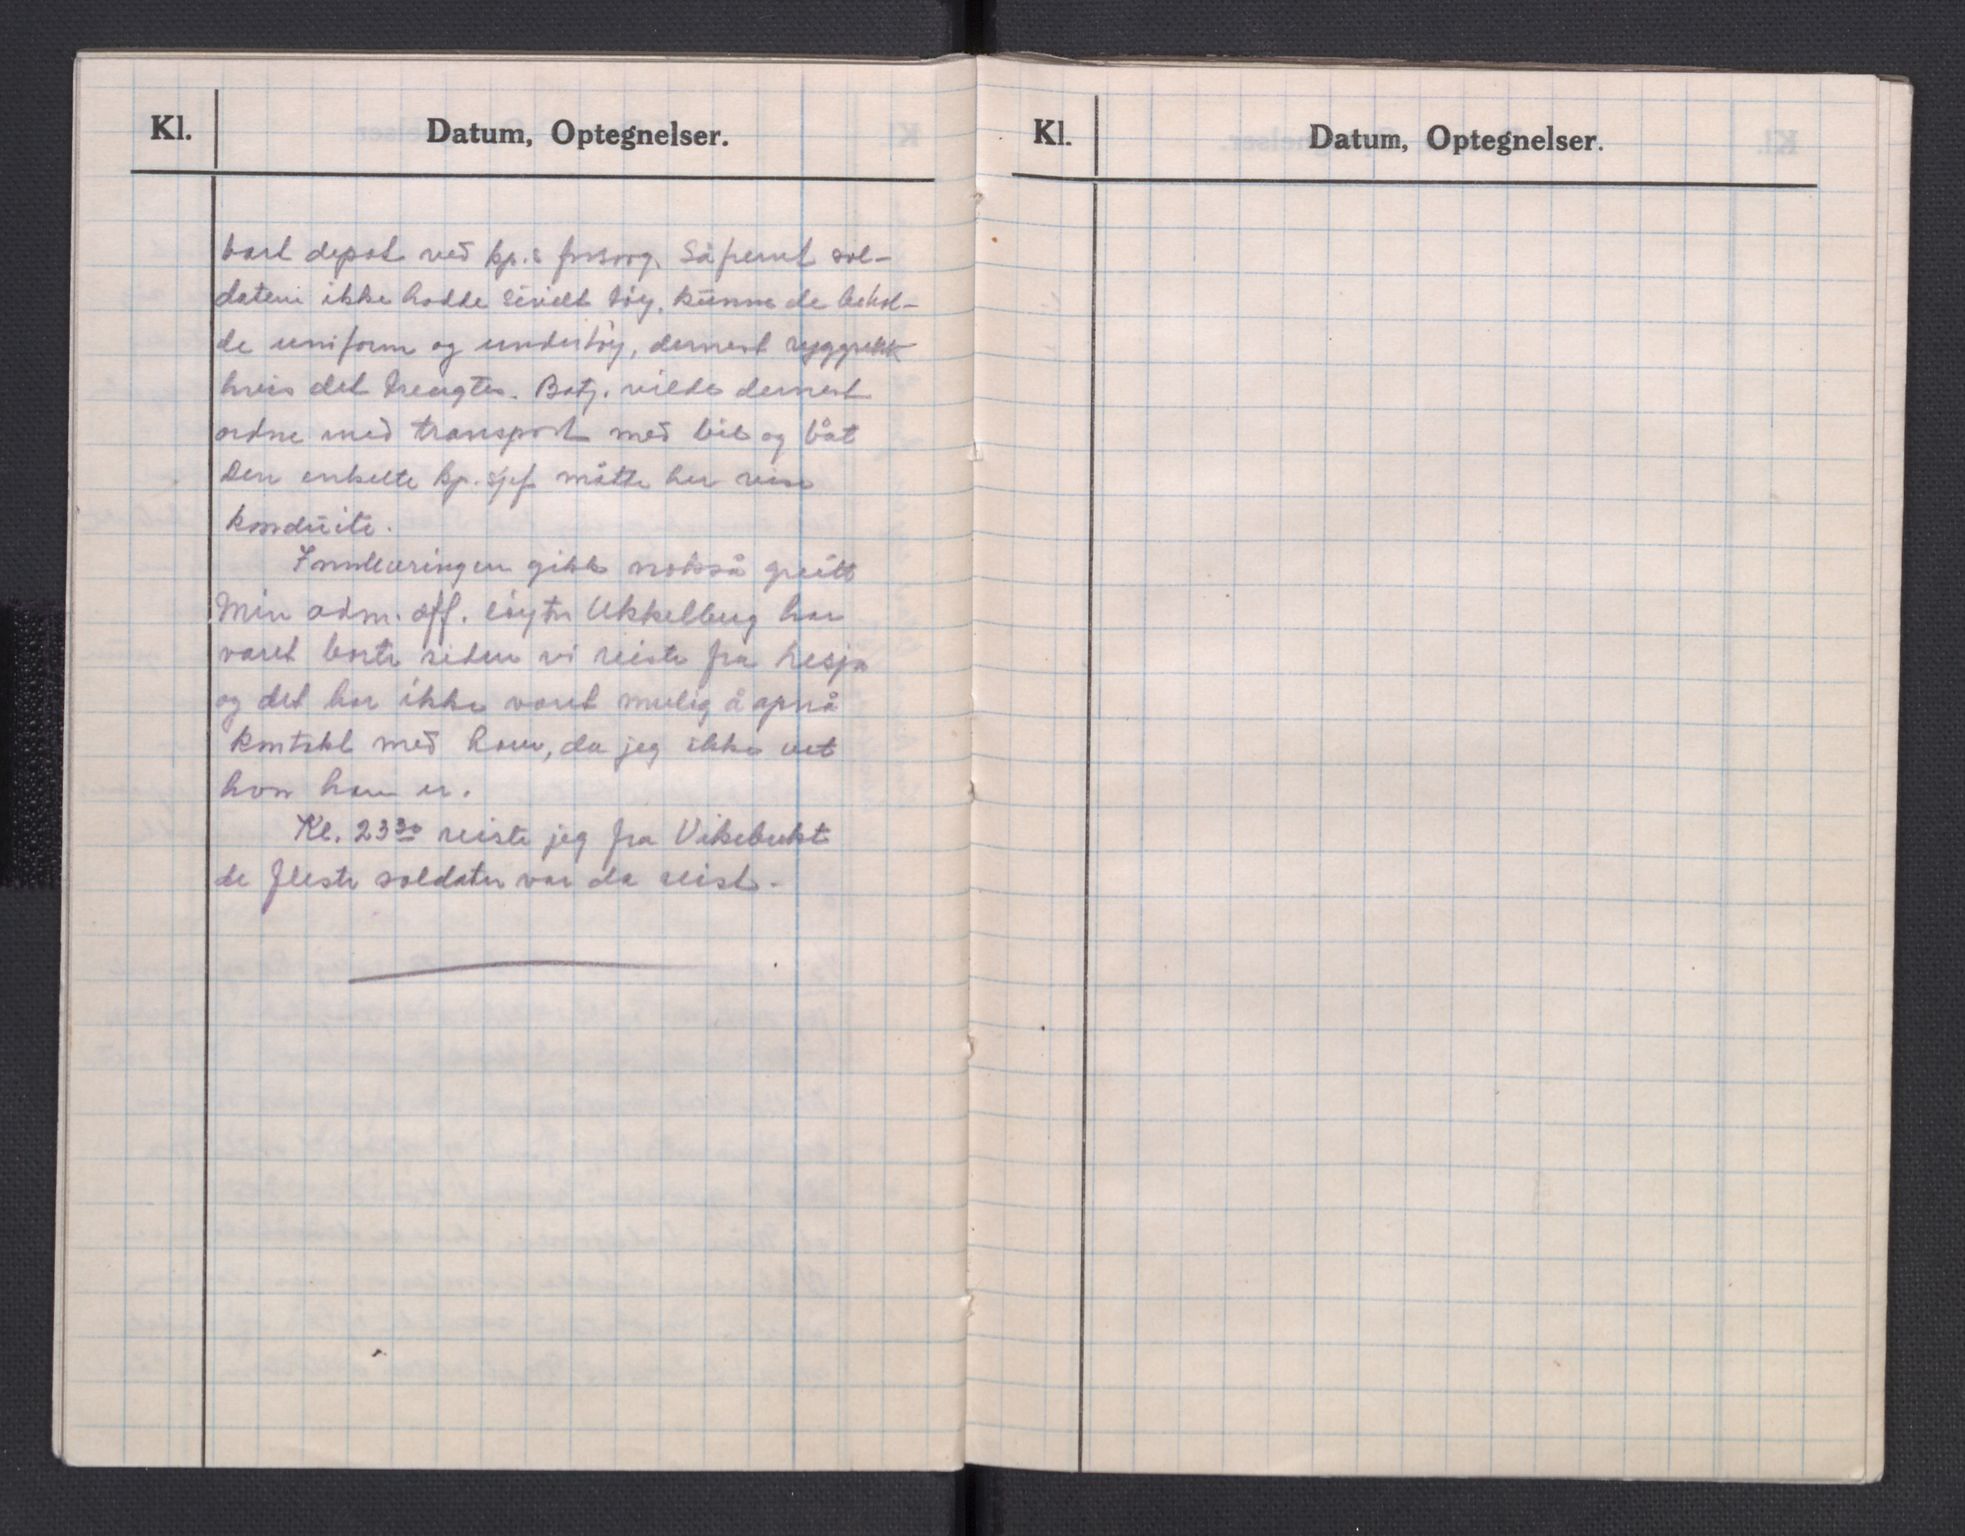 Kl.
Datum, Optegnelser.
bart depot ved kp.s forsorg. Såfremt sol-
datene ikke hadde sivilt tøy, kunne de behol-
de uniform og undertøy, dernest ryggsekk
hvis det trengtes. Batj. vilde dernest
ordne med transport med bil og båt
Den enkelte kp. sjef måtte her vise
konduite.
Innleveringen gikk nokså greitt
Min adm. off. løytn Ukkelberg har
været borte siden vi reiste fra Lesja
og det har ikke været mulig å opnå
kontakt med ham, da jeg ikke vet
hvor han er.
Kl. 23 30 reiste jeg fra Vikebukt
de fleste soldater var da reist.
Kl.
Datum, Optegnelser.